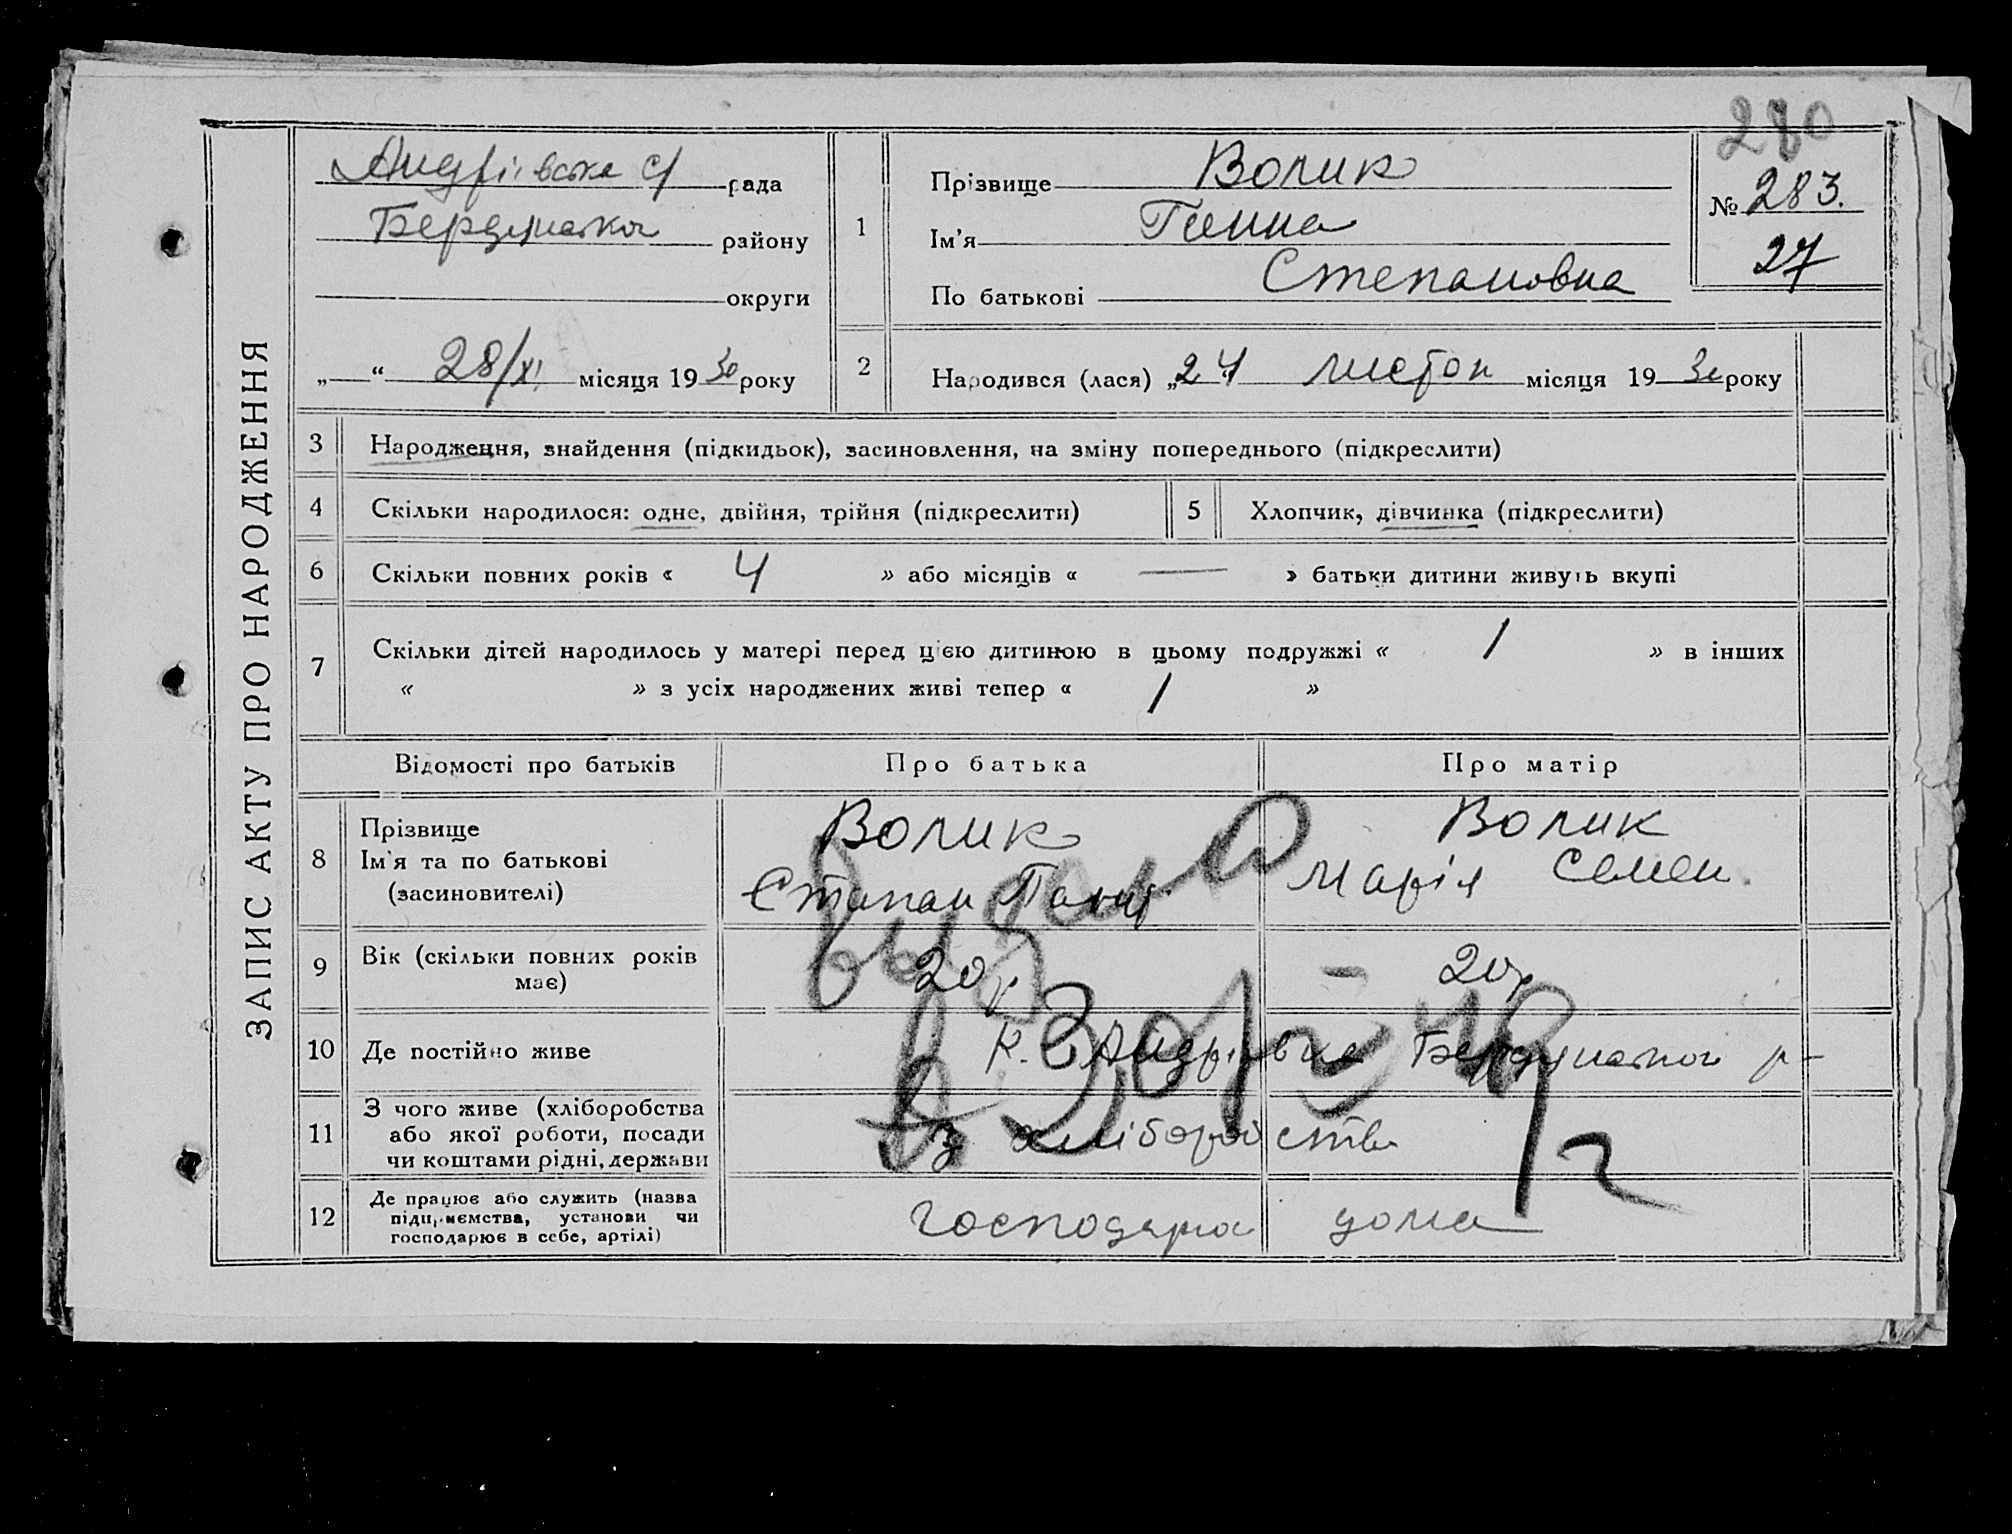 280
ЗАПИС АКТУ ПРО НАРОДЖЕННЯ
Андрієвська с/ рада
Бердянськ. району
округи
„ “ 28/XI місяця 1930 року
1
Прізвище Волик
Ім'я Ганна
По батькові Степановна
№ 283.
27
2
Народився (лася) „24 листоп місяця 1930 року
3 Народження, знайдення (підкидьок), засиновлення, на зміну попереднього (підкреслити)
4 Скільки народилося: одне, двійня, трійня (підкреслити)
5 Хлопчик, дівчинка (підкреслити)
6 Скільки повних років « 4 » або місяців « — » батьки дитини живуть вкупі
7 Скільки дітей народилось у матері перед цією дитиною в цьому подружжі « 1 » в інших
« » з усіх народжених живі тепер « 1 »
Відомості про батьків Про батька Про матір
8 Прізвище
Ім'я та по батькові
(засиновителі)
Волик
Степан
Волик
Марія Семен.
9 Вік (скільки повних років
має)
20 р
20 р
10 Де постійно живе
с. Андрієвка Бердянськ. р-
11 З чого живе (хліборобства
або якої роботи, посади
чи коштами рідні, держави
з хліборобства
12 Де працює або служить (назва
підприємства, установи чи
господарює в себе, артілі)
господарка дома